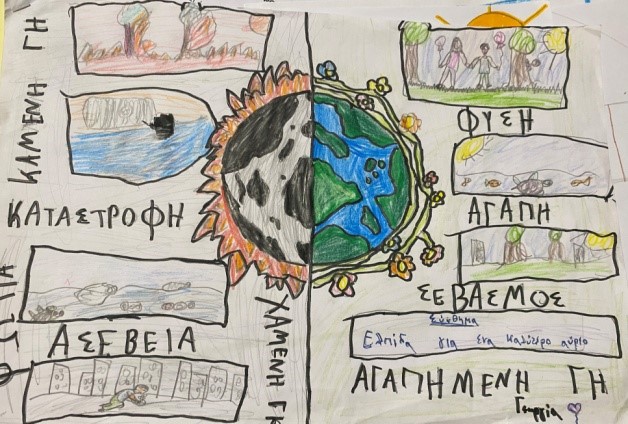 ΚΑΜΕΝΗ ΓΗ
ΚΑΤΑΣΤΡΟΦΗ
ΑΣΕΒΕΙΑ
ΧΑΜΕΝΗ ΓΗ
ΦΥΣΗ
ΑΓΑΠΗ
ΣΕΒΑΣΜΟΣ
Σύνθημα
Ελπίδα για ένα καλύτερο αύριο
ΑΓΑΠΗΜΕΝΗ ΓΗ
Γεωργία